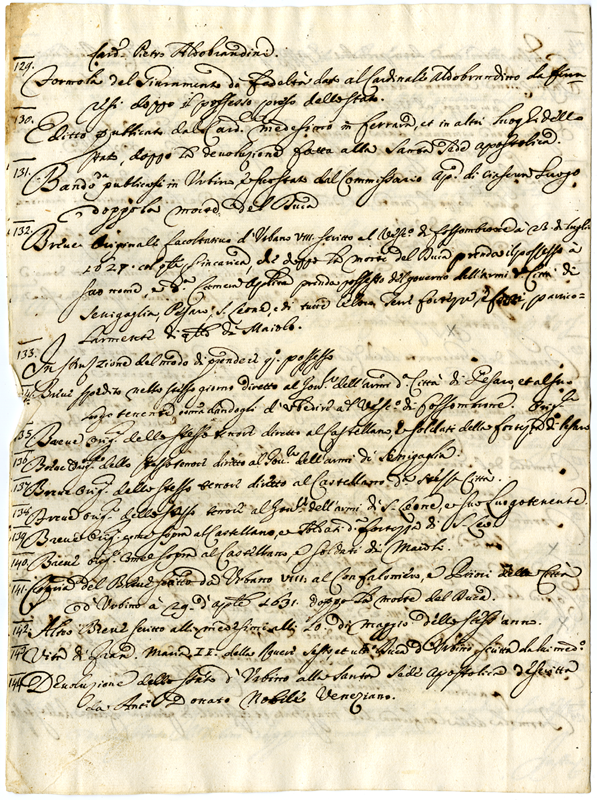 Card. Pietro Aldobrandini.
129.
Formola del Giuramento di Fedeltà dato al Cardinale Aldobrandino da
doppo il possesso preso dello Stato.
130.
Editto publicato dal Card. medesimo in Ferrara, et in altri luoghi dello
Stato, doppo la devoluzione fatta alla Santa Sede Apostolica.
131.
Bando publicatosi in Urbino, e suo Stato dal Commissario Ap. di ciascun luogo
doppo la morte del Duca
132.
Breve originale d'Urbano VIII. scritto al Vesc.o di Fossombrone à 28. di luglio
1627. col q.le s'incarica, che doppo la morte del Duca prenda il possesso à
suo nome, e d.a Camera Apostolica prenda possesso del governo dell'armi e Città di
Senigaglia, Pesaro, S. Leone, e di tutte l'altre Terre, fortezze, e partico-
larmente di q.lla di Maiolo.
133.
Instruzione del modo di prendere q.o possesso
Breve spedito nello stesso giorno diretto al Gov.re dell'armi d.a Città di Pesaro, et al suo
luogotenente comandandogli d'ubedire al Vesc.o di Fossombrone. Orig.le
135.
Breve Orig.le dello stesso tenore diretto al Castellano, e soldati della Fortezza di Pesaro
136.
Breve Orig.le dello stesso tenore diretto al Gov.re dell'armi di Senigaglia.
137.
Breve Orig.le dello stesso tenore diretto al Castellano di stessa Città.
138.
Breve Orig.le dello stesso tenore al Gov.re dell'armi di S. Leone, e suo Luogotenente.
139.
Breve Orig.le come sopra al Castellano, e Soldati d.a Fortezza di S. Leo.
140.
Breve Orig.le come sopra al Castellano, e Soldati di Maiolo.
141.
Coppia del Breve scritto da Urbano VIII. al Confaloniero, e Priori della Città
di Urbino à 29. d'Aprile 1631. doppo la morte del Duca.
142.
Altro Breve scritto alli medesimi alli 20. di maggio dello stesso anno.
143.
Vita di Fran.co Maria II. della Rovere sesto, et ult.o Duca d'Urbino, scritta da lui med.o
144.
Devoluzione dello Stato d'Urbino alla Santa Sede Apostolica descritta
da Ant.o Donato Nobile Veneziano.